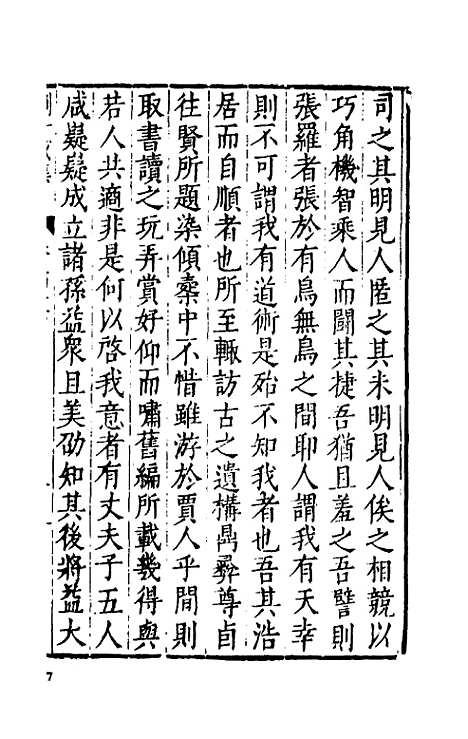 司之其明見人匿之其未明見人俟之相競以
巧角機智乘人而鬬其捷吾猶且羞之吾譬則
張羅者張於有鳥無鳥之間聊人謂我有天幸
則不可謂我有道術是殆不知我者也吾其浩
居而自順者也所至輙訪古之遺構鼎彝尊卣
往賢所題染傾橐中不惜雖游於賈人乎間則
取書讀之玩弄賞好仰而嘯舊編所載幾得與
若人共適非是何以啓我意者有丈夫子五人
咸嶷嶷成立諸孫益衆且美劭知其後將益大
7